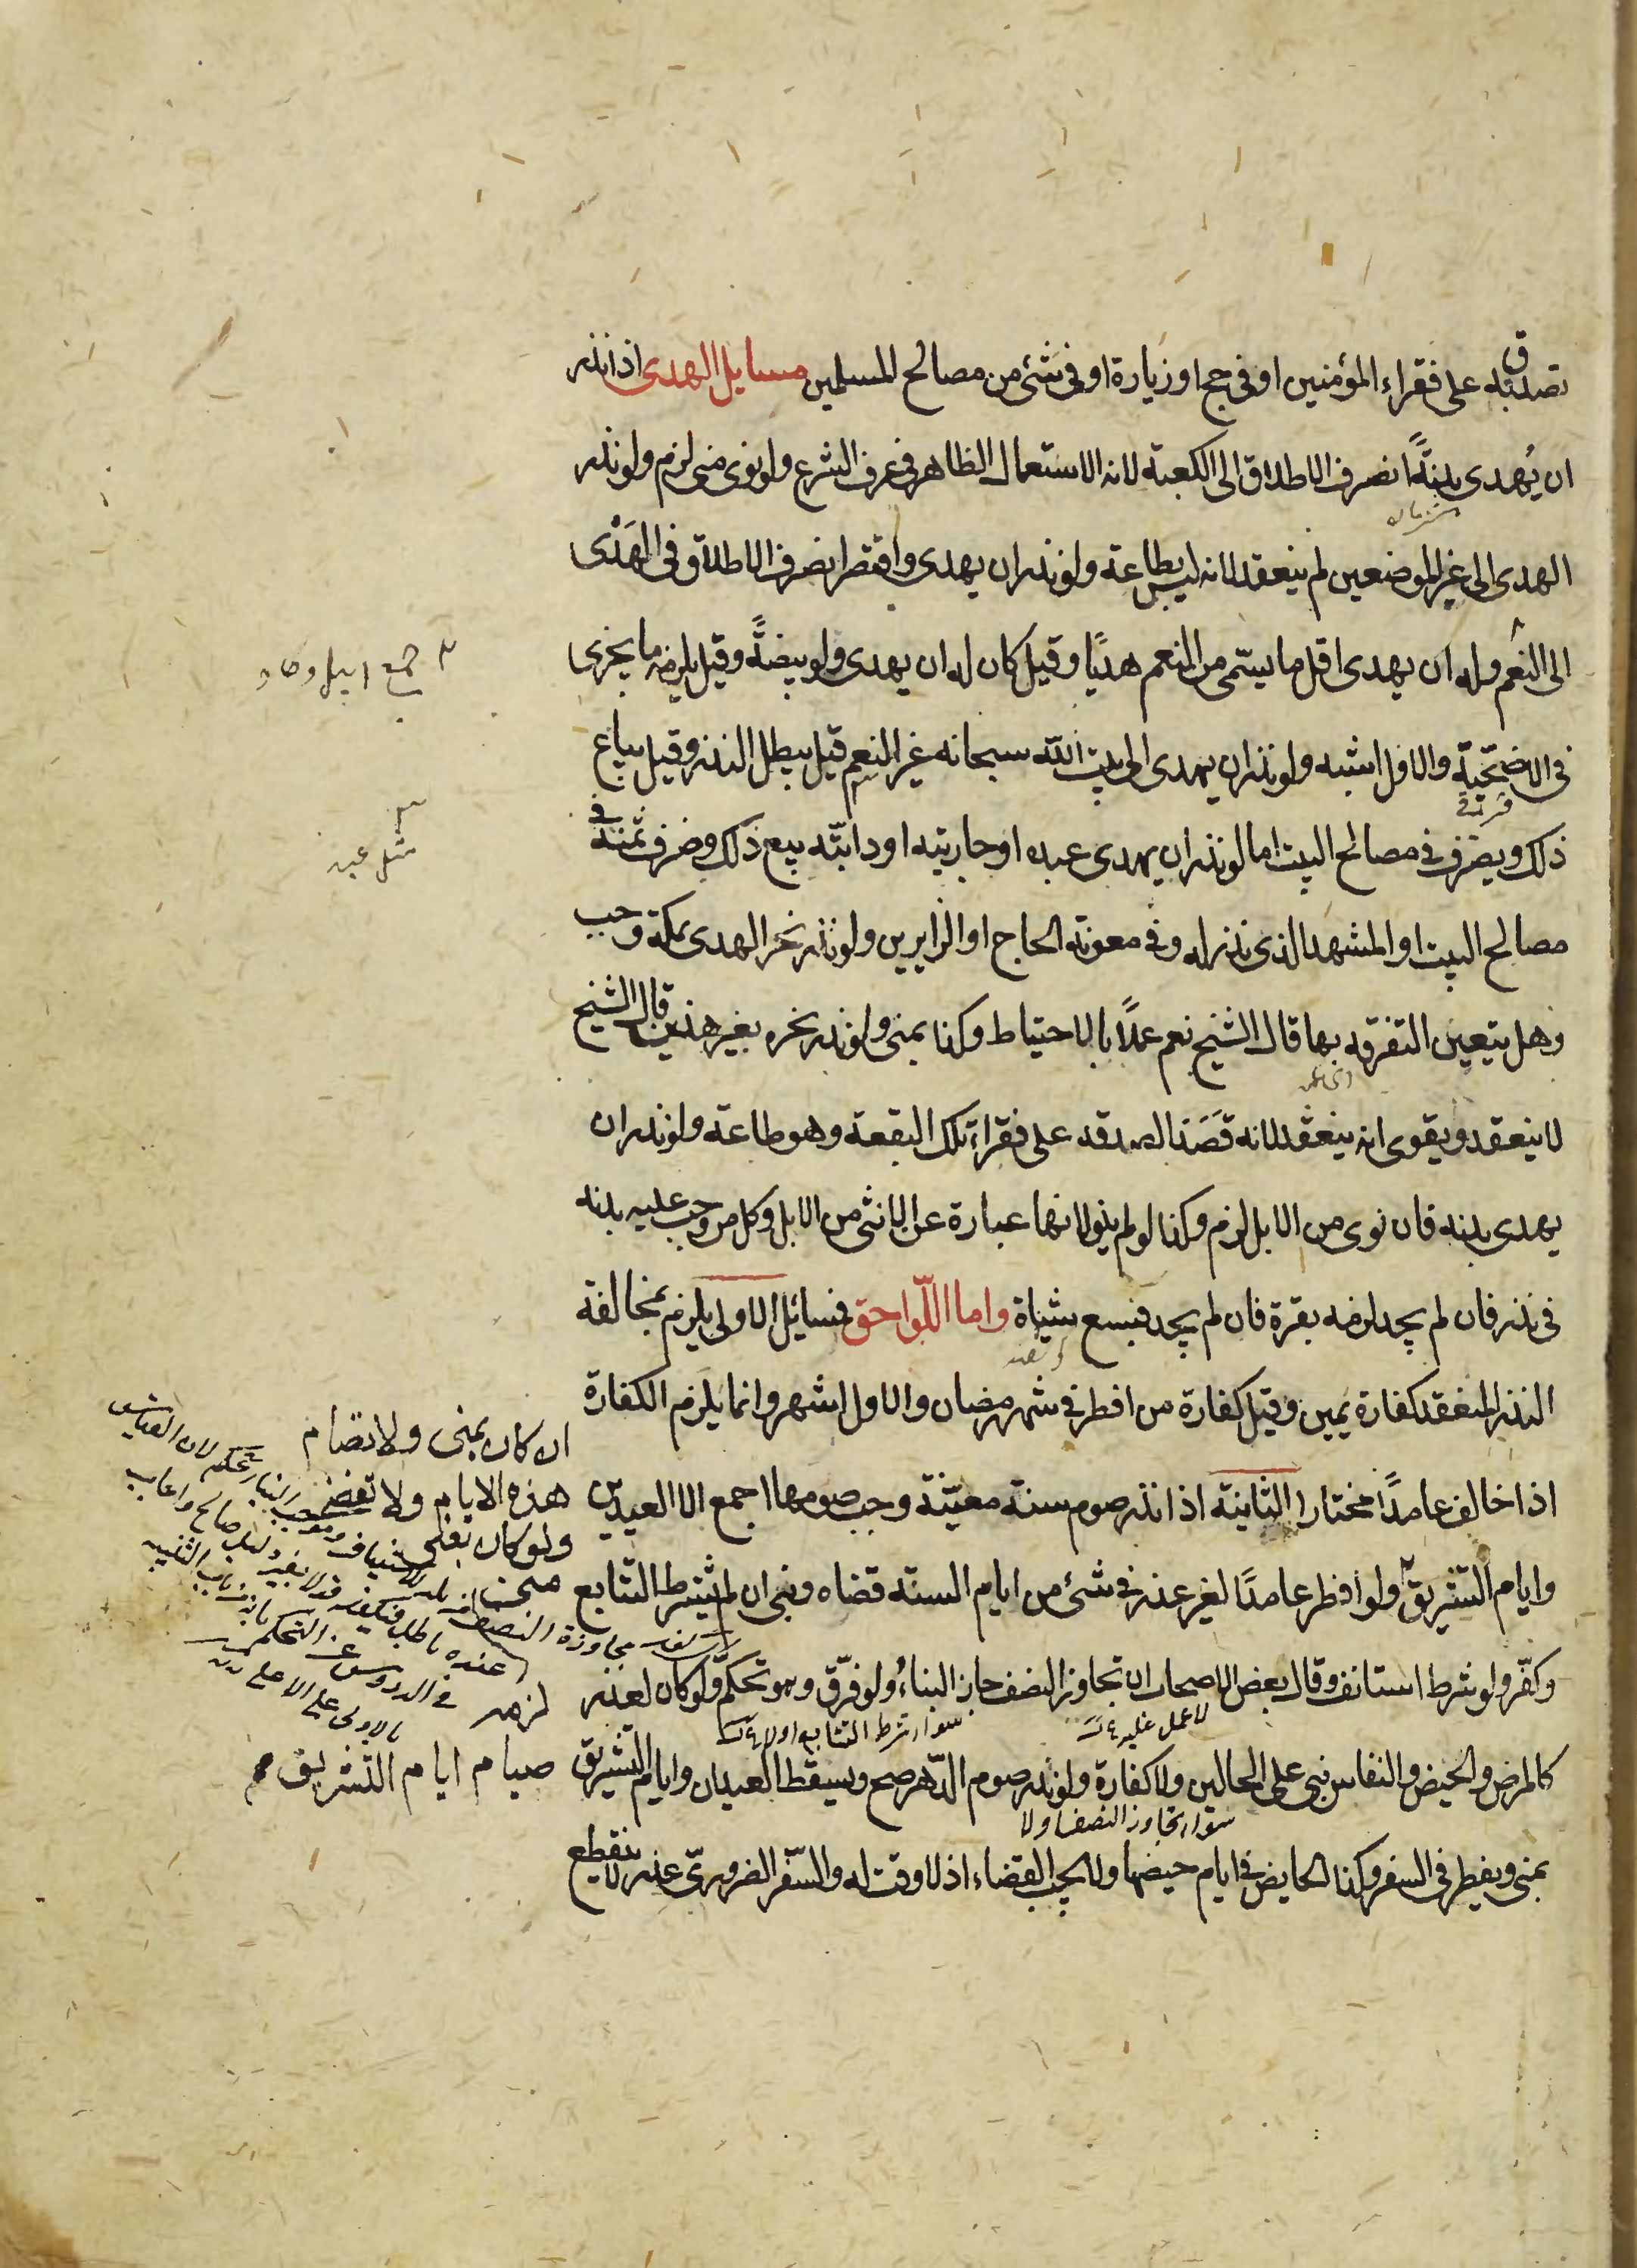 تصدق به على فقراء المؤمنين او فى حج او زيارة او فى شئ من مصالح المسلمين مسايل الهدى اذا نذر
ان يُهدى بدنةً انصرف الاطلاق الى الكعبة لانه الاستعمال الظاهر فى عرف الشرع ولو نوى منى لزم ولو نذر
الهدى الى غير الموضعين لم ينعقد لانه ليس بطاعة ولو نذر ان يهدى واقتصر انصرف الاطلاق فى الهَدْى
الى النعم وله ان يهدى اقل ما يسمّى من النعم هديًا وقيل كان له ان يهدى ولو بيضةً وقيل يلزمه ما يجزى
فى الاضحيّة والاول اشبه ولو نذر ان يهدى الى بيت الله سبحانه غير النعم قيل يبطل النذر وقيل يباع
ذلك ويصرف فى مصالح البيت اما لو نذر ان يهدى عبده او جاريته او دابّته بيع ذلك وصرف ثمنه فى
مصالح البيت او المشهد الذى نذر له وفى معونة الحاج او الزايرين ولو نذر نحر الهدى بمكة وجب
وهل يتعين التفرقه بها قال الشيخ نعم عملًا بالاحتياط وكذا بمنى ولو نذر نحره بغير هذين قال الشيخ
لا ينعقد ويقوى انه ينعقد لانه قَصَدَ الصدقه على فقراء تلك البقعة وهو طاعة ولو نذر ان
يهدى بدنه فان نوى من الابل لزم وكذا لو لم ينو لانها عبارة عن الانثى من الابل وكل من وجب عليه بدنه
فى نذر فان لم يجد لزمه بقرة فان لم يجد فسبع شياة واما اللّواحق فمسائل الاولى يلزم بمخالفة
النذر المنعقد كفارة يمين وقيل كفارة من افطر فى شهر رمضان والاول اشهر وانما يلزم الكفارة
اذا خالف عامدًا مختارا الثانية اذا نذر صوم سنة معيّنة وجب صومها اجمع الا العيدين
وايام التشريق ولو افطر عامدًا لغير عذر فى شئ من ايام السنة قضاه وبنى ان لم يشترط التتابع
وكفّر ولو شرط استانف وقال بعض الاصحاب ان تجاوز النصف جاز البناءُ ولو فرّق وهو تحكمٌ ولو كان لعذر
كالمرض والحيض والنفاس بنى على الحالين ولا كفارة ولو نذر صوم الدّهر صح ويسقط العيدان وايام التشريق
بمنى ويفطر فى السفر وكذا الحايض فى ايام حيضها ولا يجب القضاء اذ لا وقت له والسّفر الضرورىّ عذر لا ينقطع
سوار شرط التتابع اولا
سوار تجاوز النصف اولا
ان كان بمنى ولا تصام
هذه الايام ولا تقضى
ولو كان بغير
منى
لزمه
صيام ايام التشريق